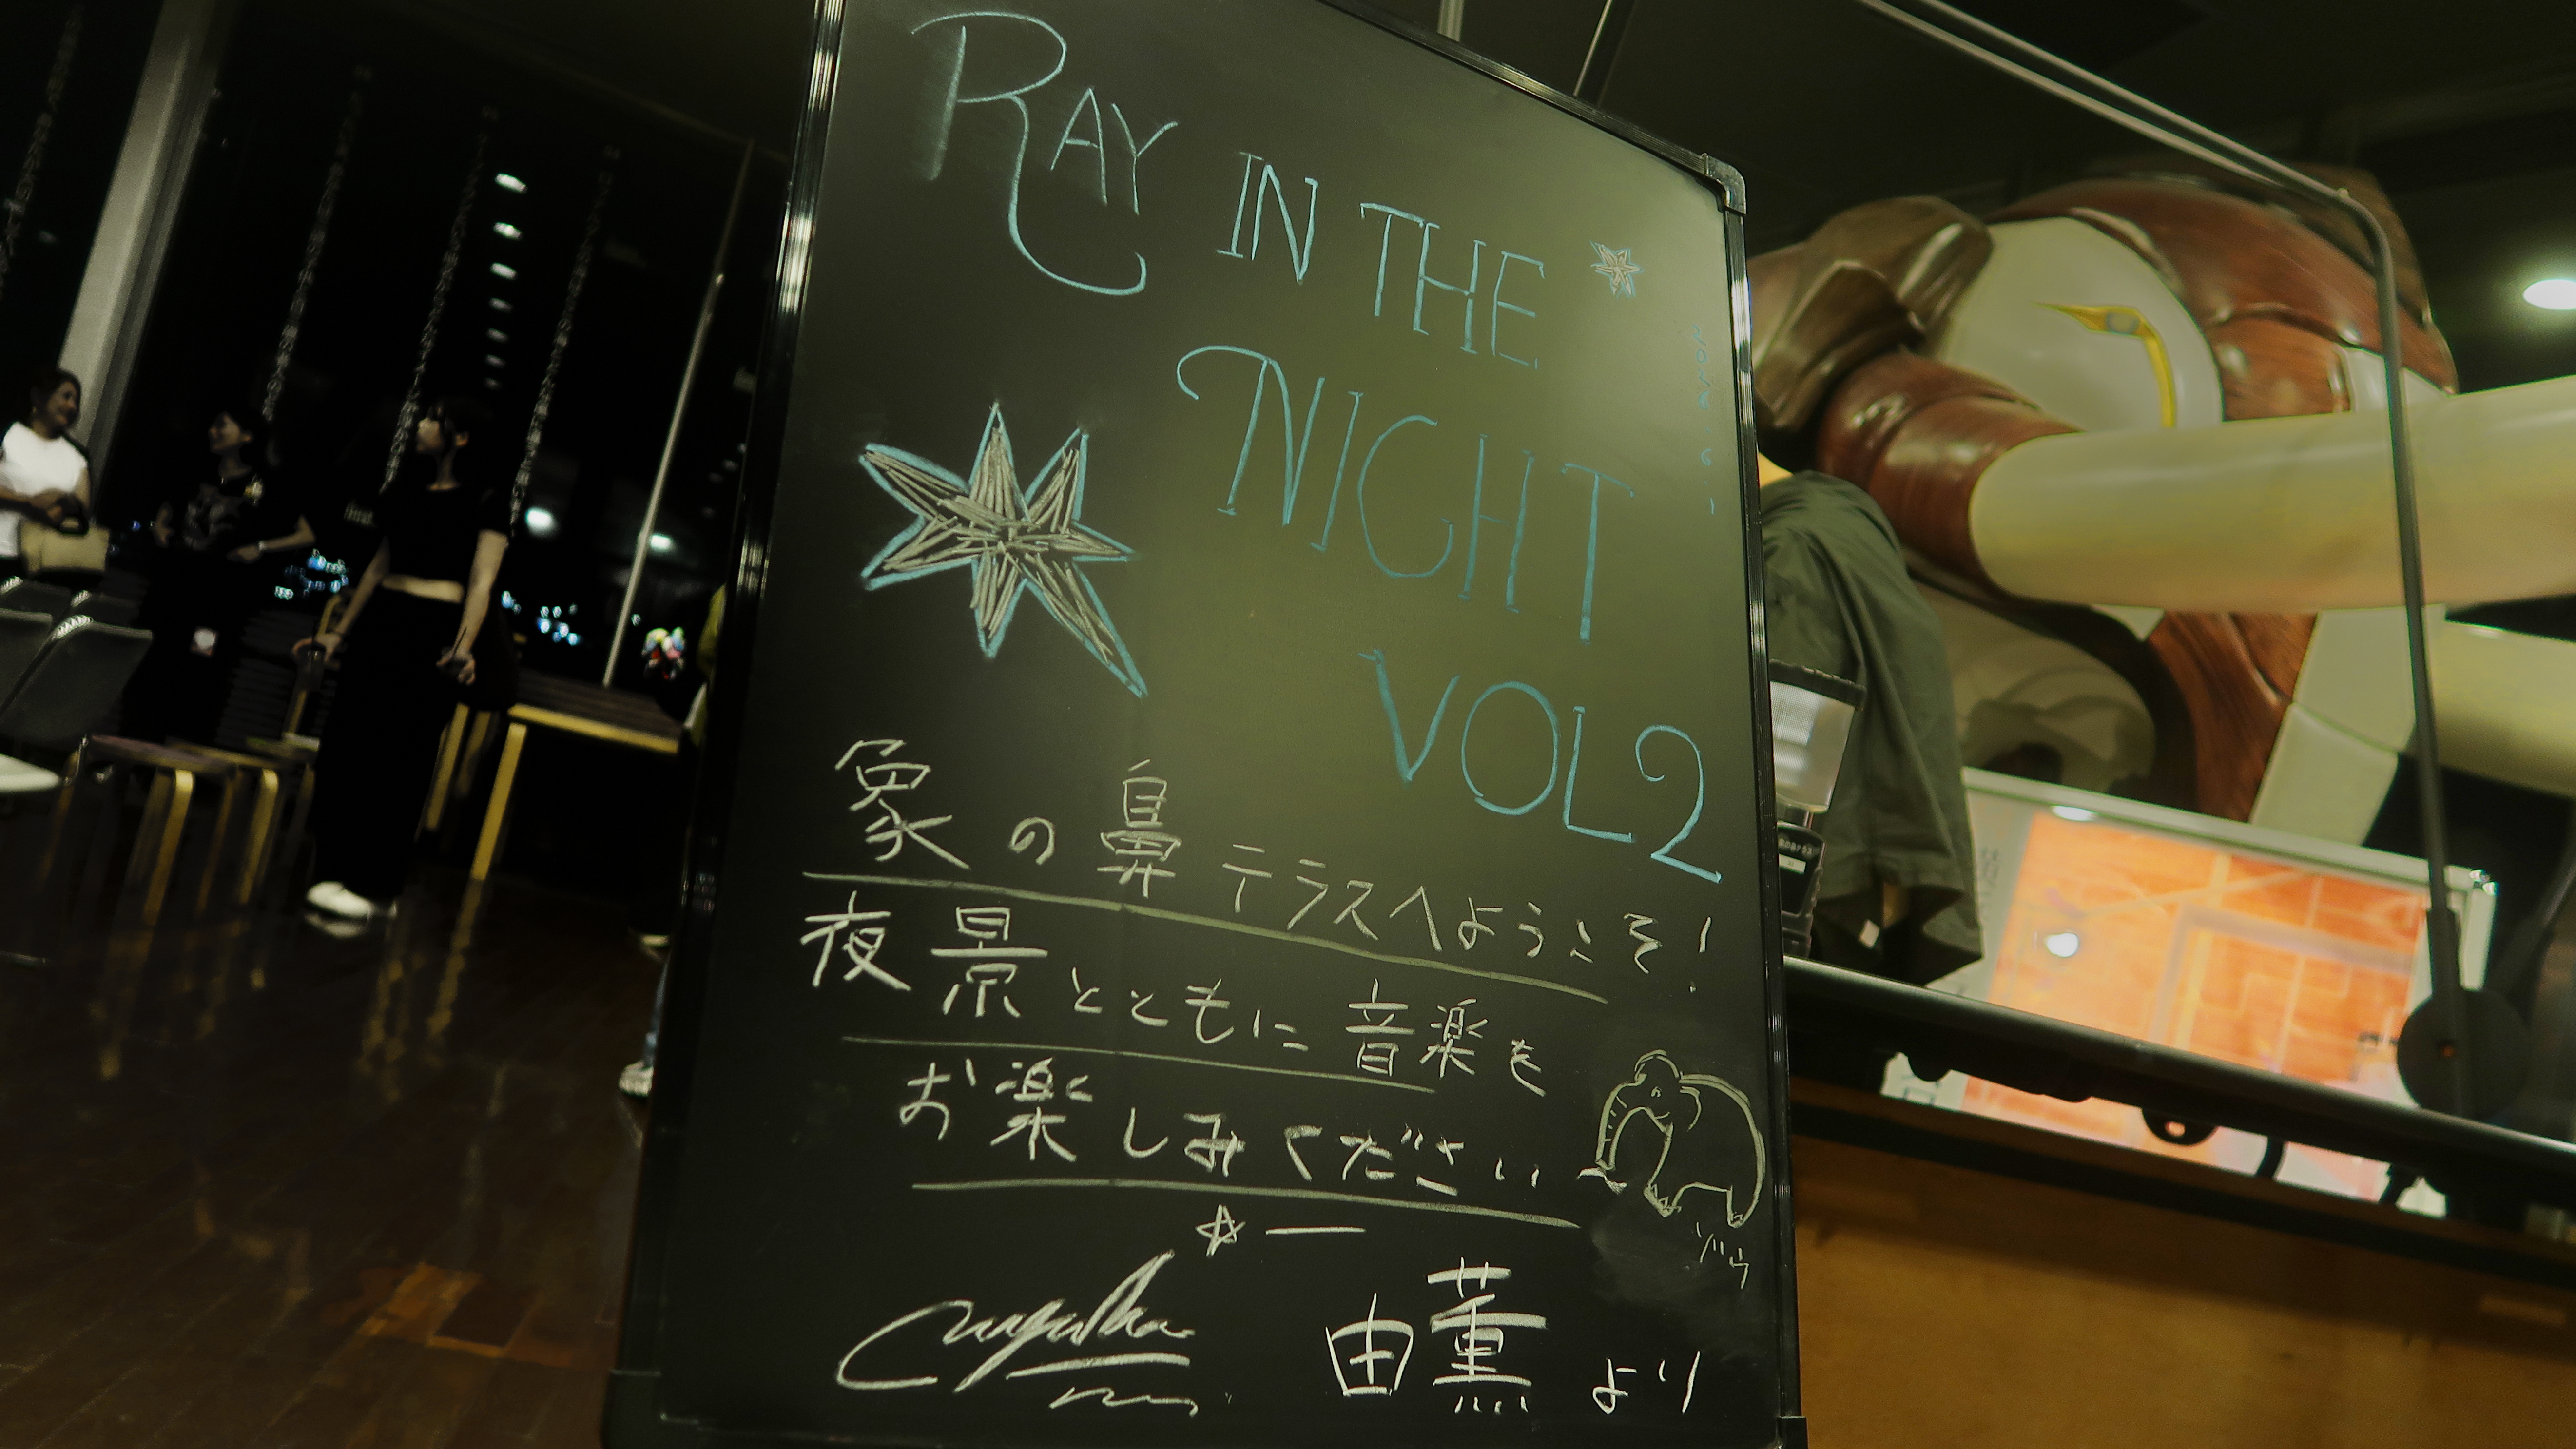 RAY IN THE
NIGHT
VOL2
象の鼻テラスへようこそ!
夜景とともに音楽を
お楽しみください
由薫より